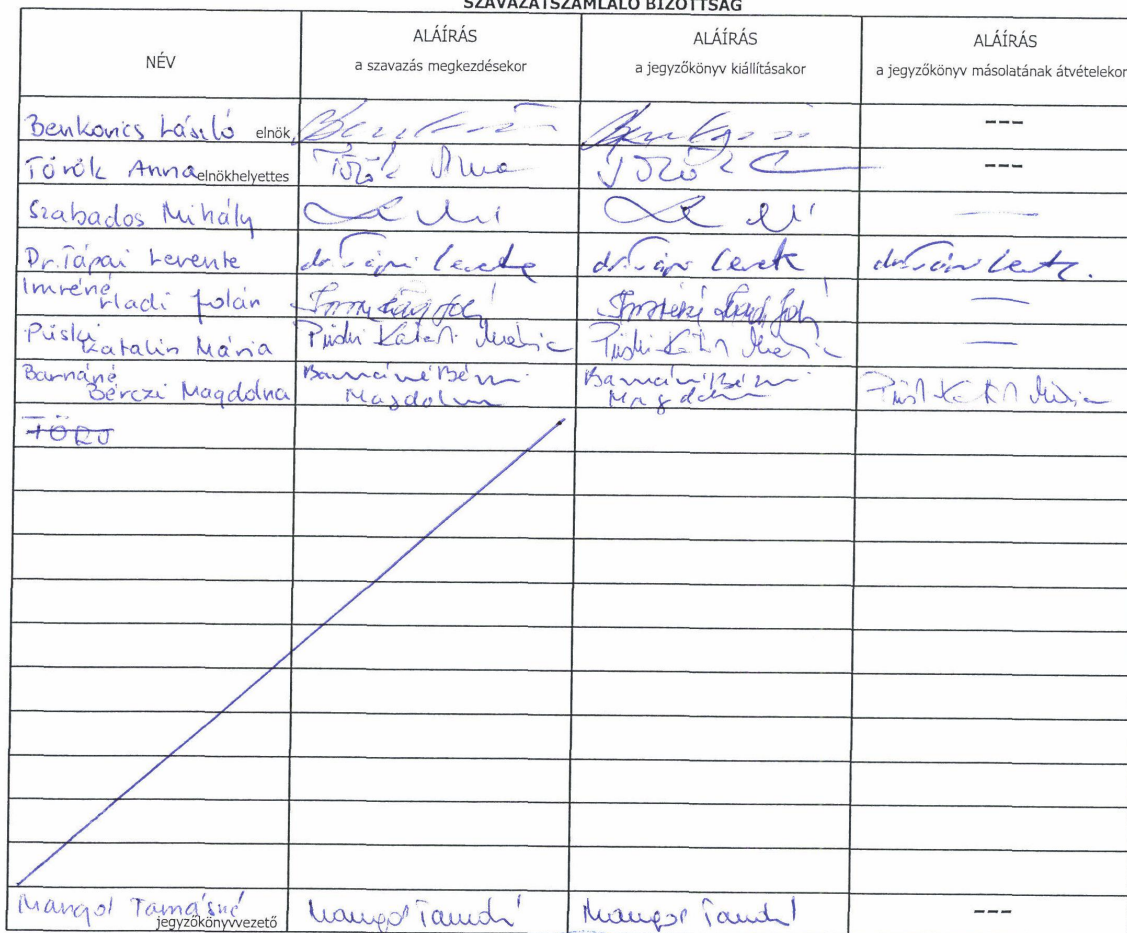 SZAVAZATSZÁMLÁLÓ BIZOTTSÁG
NÉV
ALÁÍRÁS
a szavazás megkezdésekor
ALÁÍRÁS
a jegyzőkönyv kiállításakor
ALÁÍRÁS
a jegyzőkönyv másolatának átvételekor
Benkovics László elnök ---
Török Anna elnökhelyettes Török Anna Török ---
Szabados Mihály —
Dr. Tápai Levente dr. Tápai Levente dr. Tápai Levente
Imréné
Hadi Jolán —
Püski
Katalin Mária Püski Katalin Mária Püski Katalin Mária —
Barnáné
Bérczi Magdolna
Barnáné Bérczi
Magdolna
Barnáné Bérczi
Magdolna
Püski Katalin Mária
Mangol Tamásné
jegyzőkönyvvezető Mangol Tamásné Mangol Tamásné ---